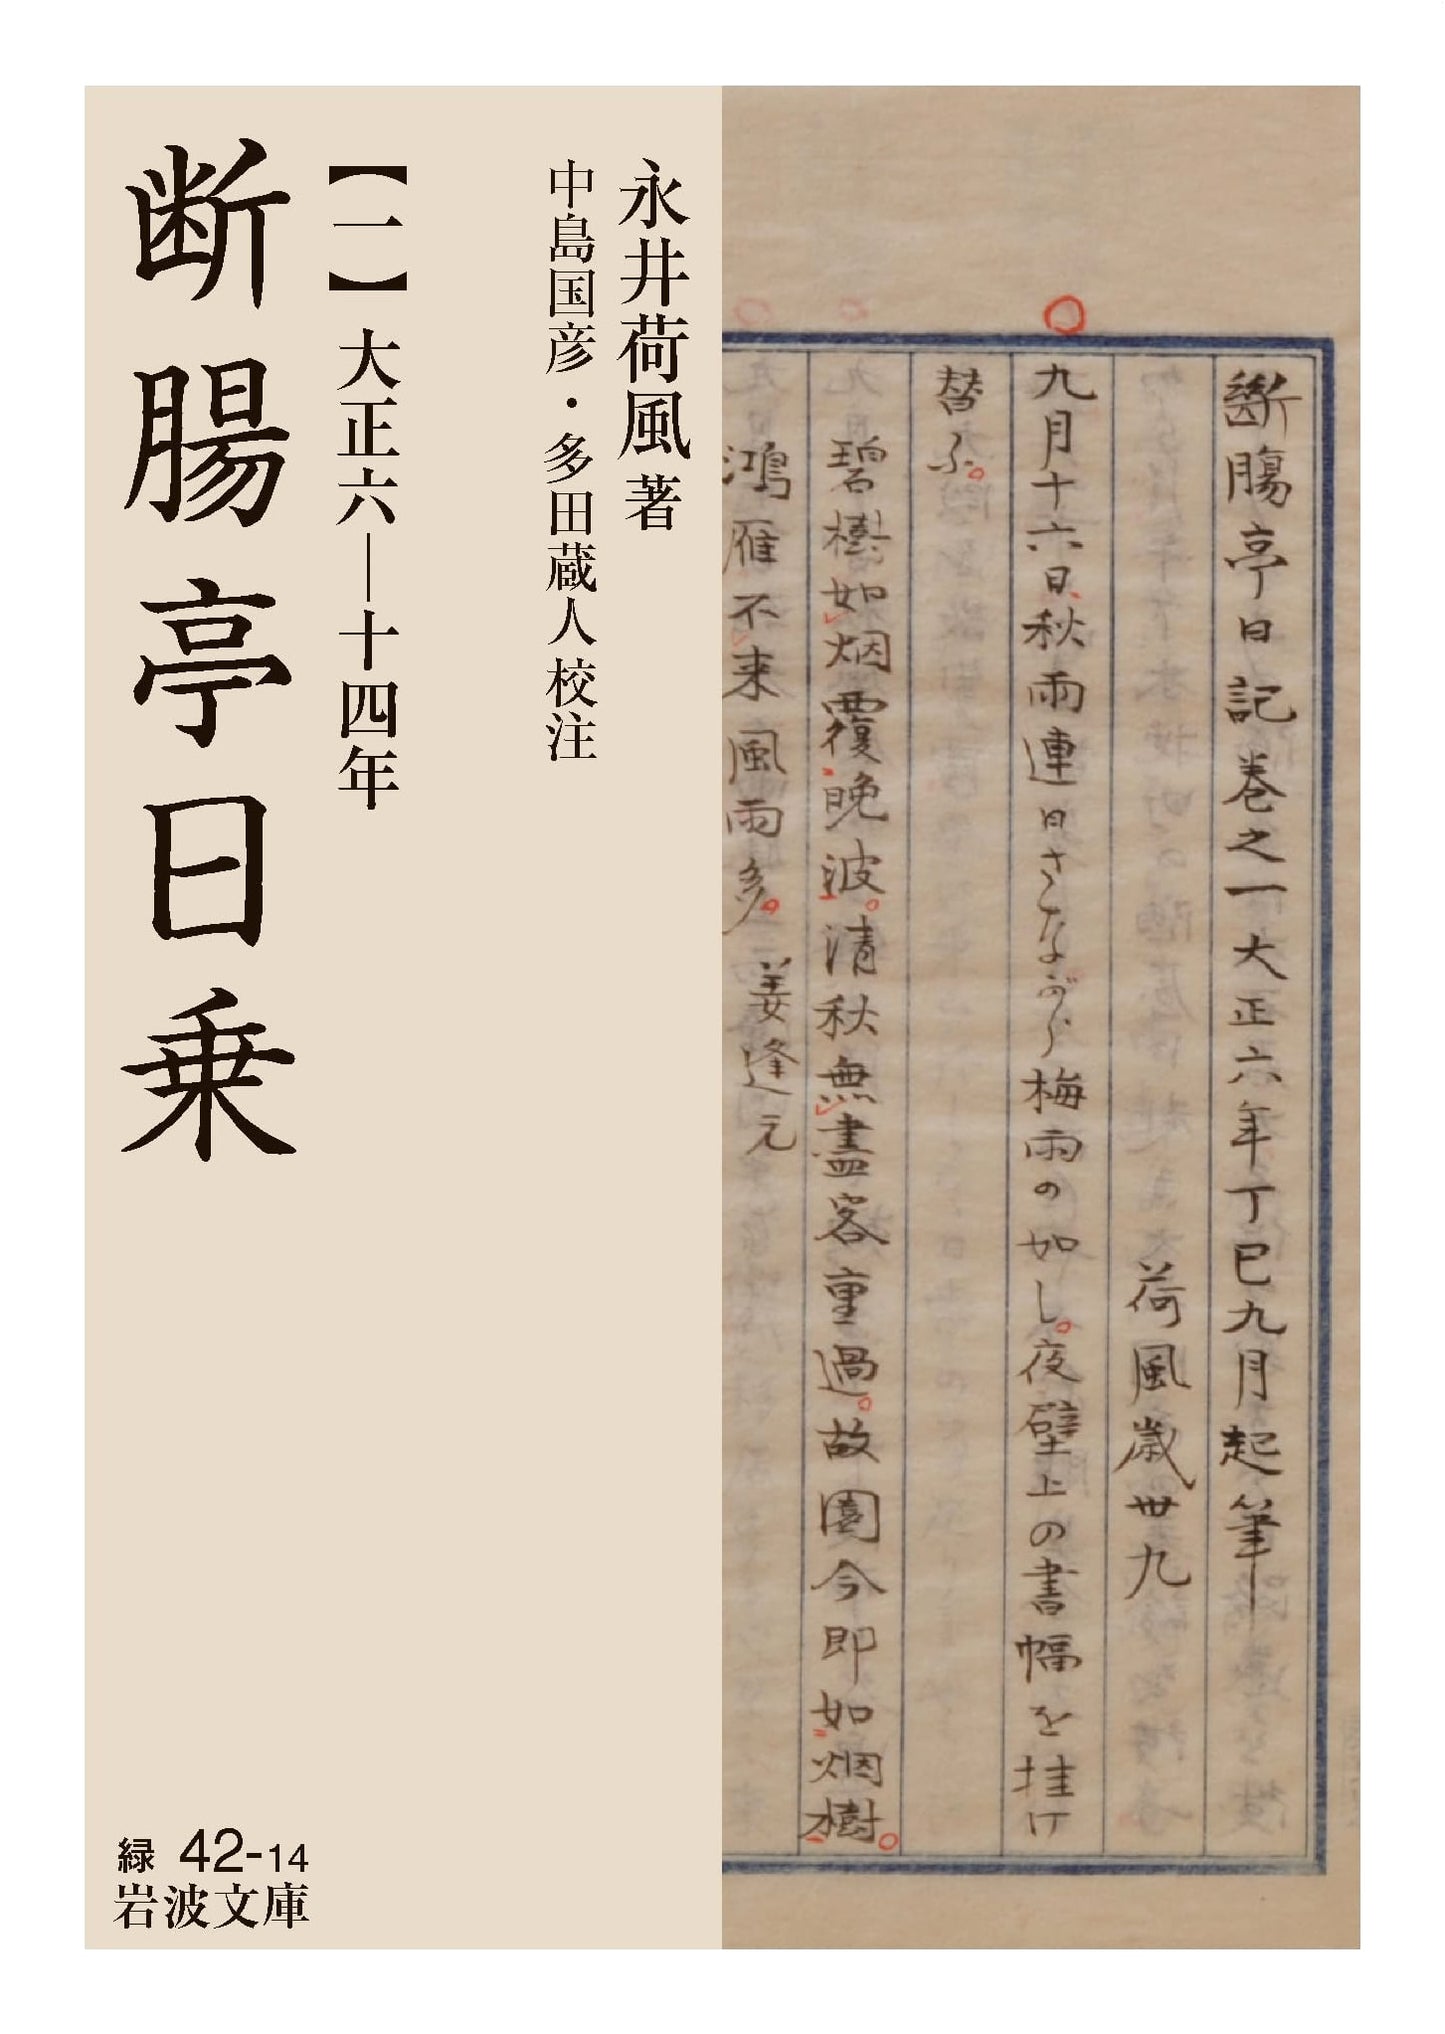 斷膓亭日記巻之一大正六年丁巳九月起筆
荷風歳卅九
九月十六日、秋雨連日さながら梅雨の如し。夜壁上の書幅を挂け
替ふ。
碧樹如烟覆晩波。清秋無盡客重過。故園今即如烟樹。
鴻雁不来風雨多。姜逢元
永井荷風 著
中島国彦・多田蔵人 校注
【一】大正六―十四年
断腸亭日乗
緑 42-14
岩波文庫